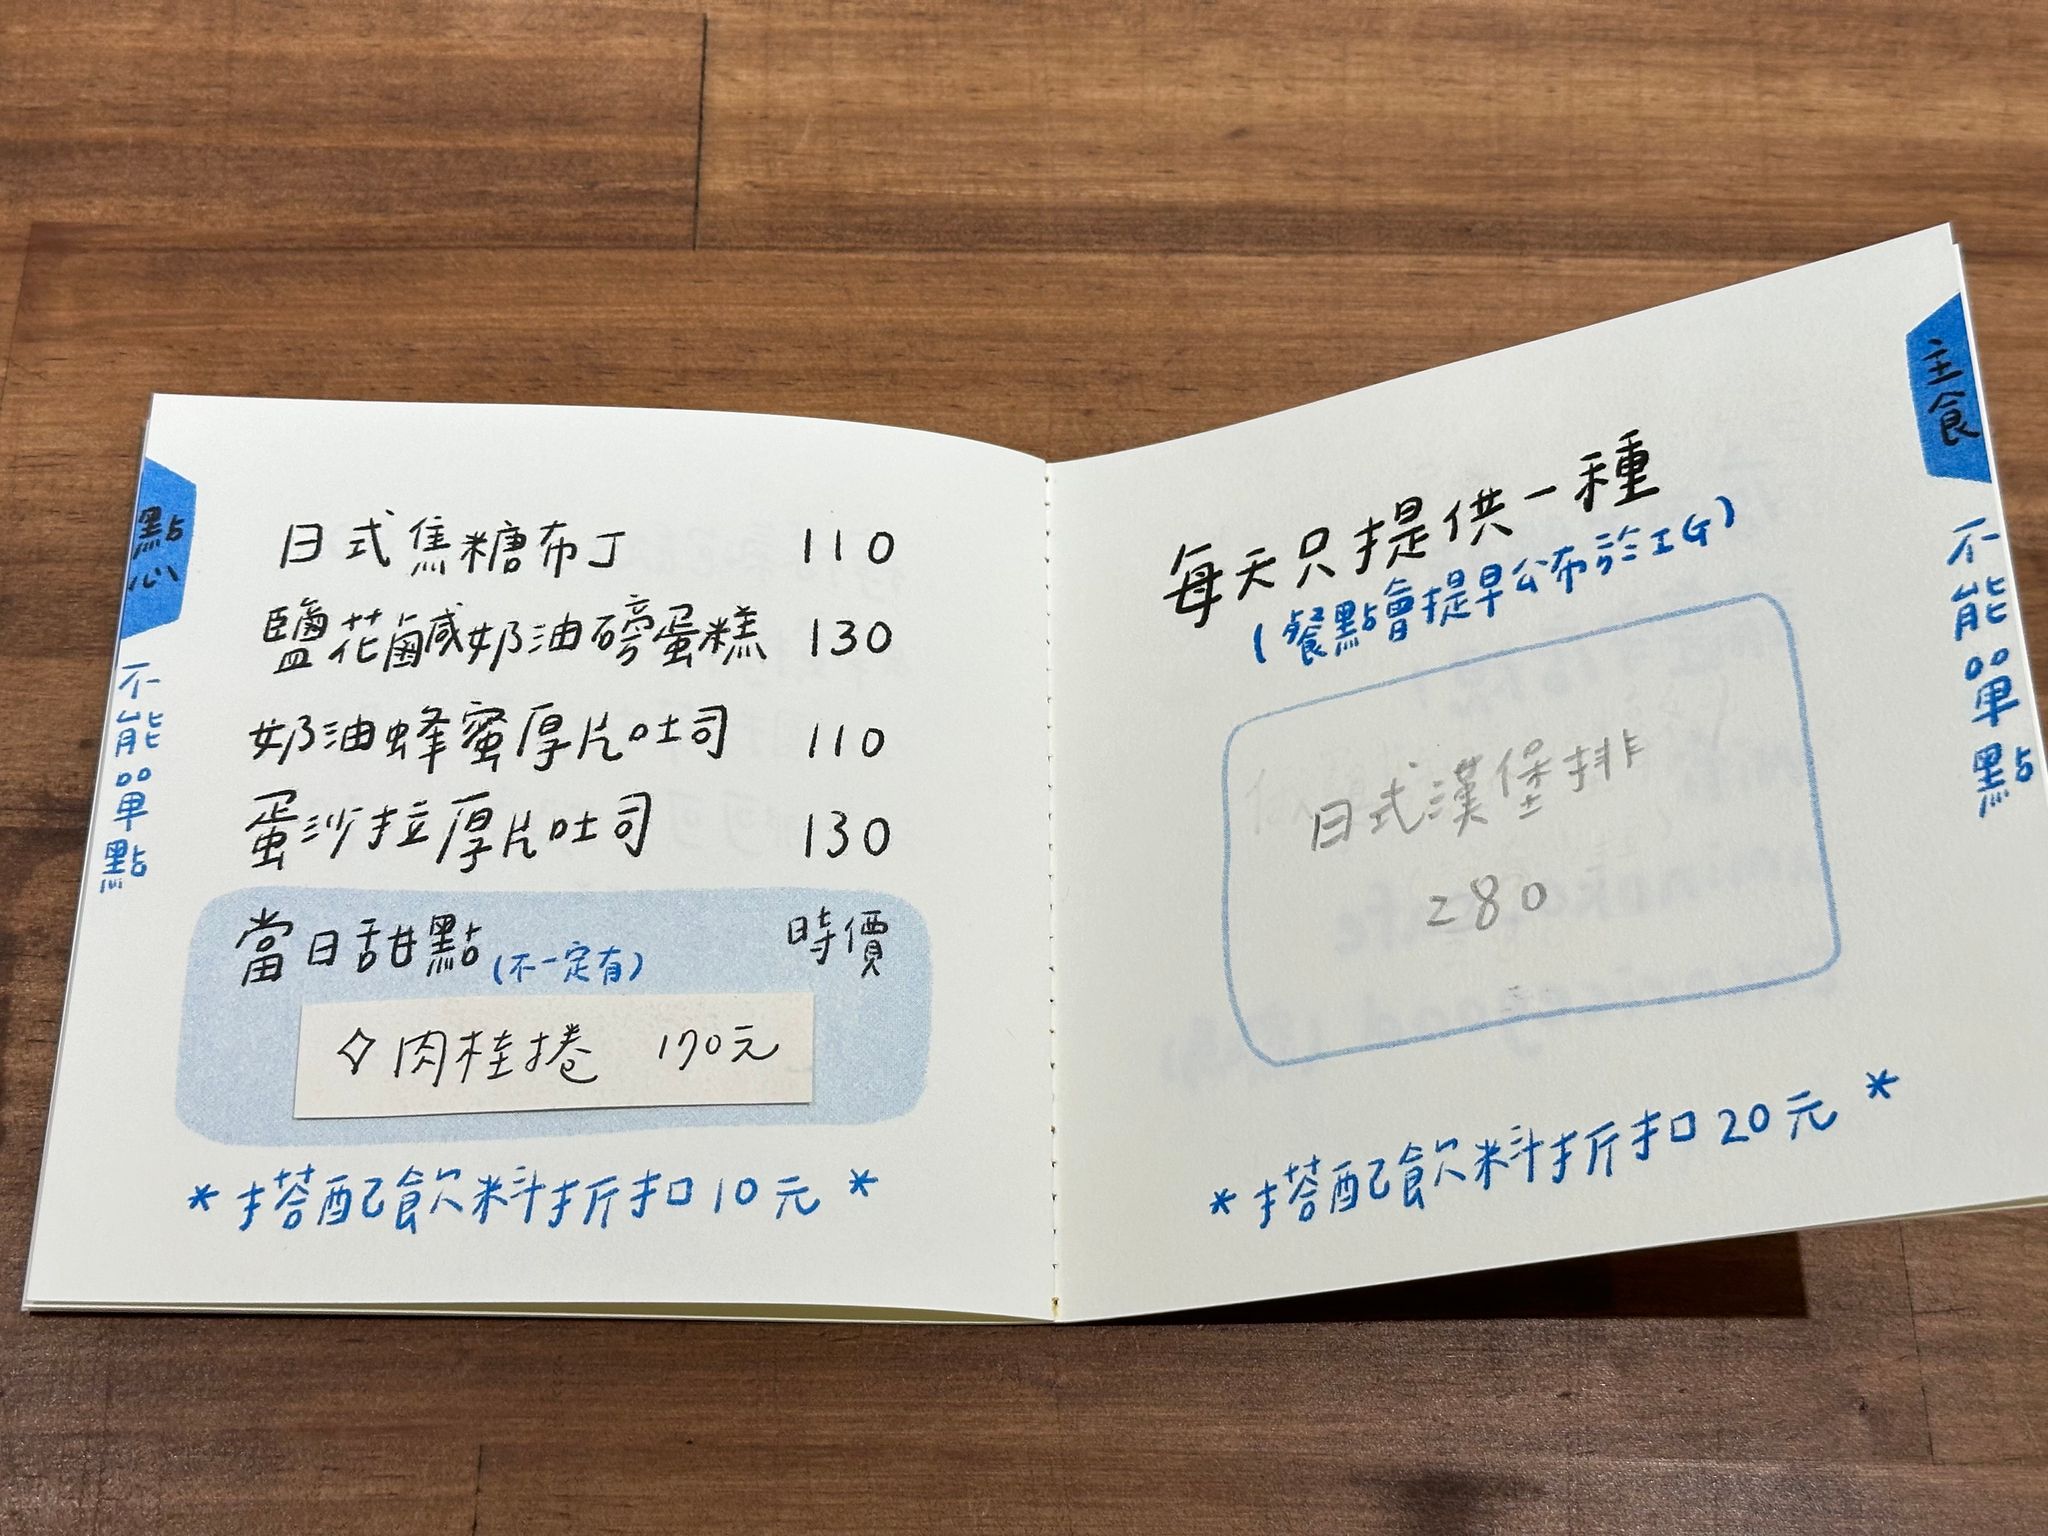 點心
不能單點
日式焦糖布丁 110
鹽花鹹奶油磅蛋糕 130
奶油蜂蜜厚片吐司 110
蛋沙拉厚片吐司 130
當日甜點(不一定有) 時價
✧肉桂捲 170元
*搭配飲料折扣10元*
主食
不能單點
每天只提供一種
(餐點會提早公布於IG)
日式漢堡排
280
*搭配飲料折扣20元*